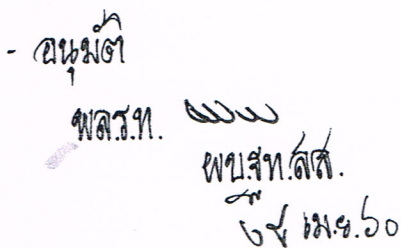 - อนุมัติ
พล.ร.ท.
ผบ.ฐท.สส.
เม.ย.๖๐